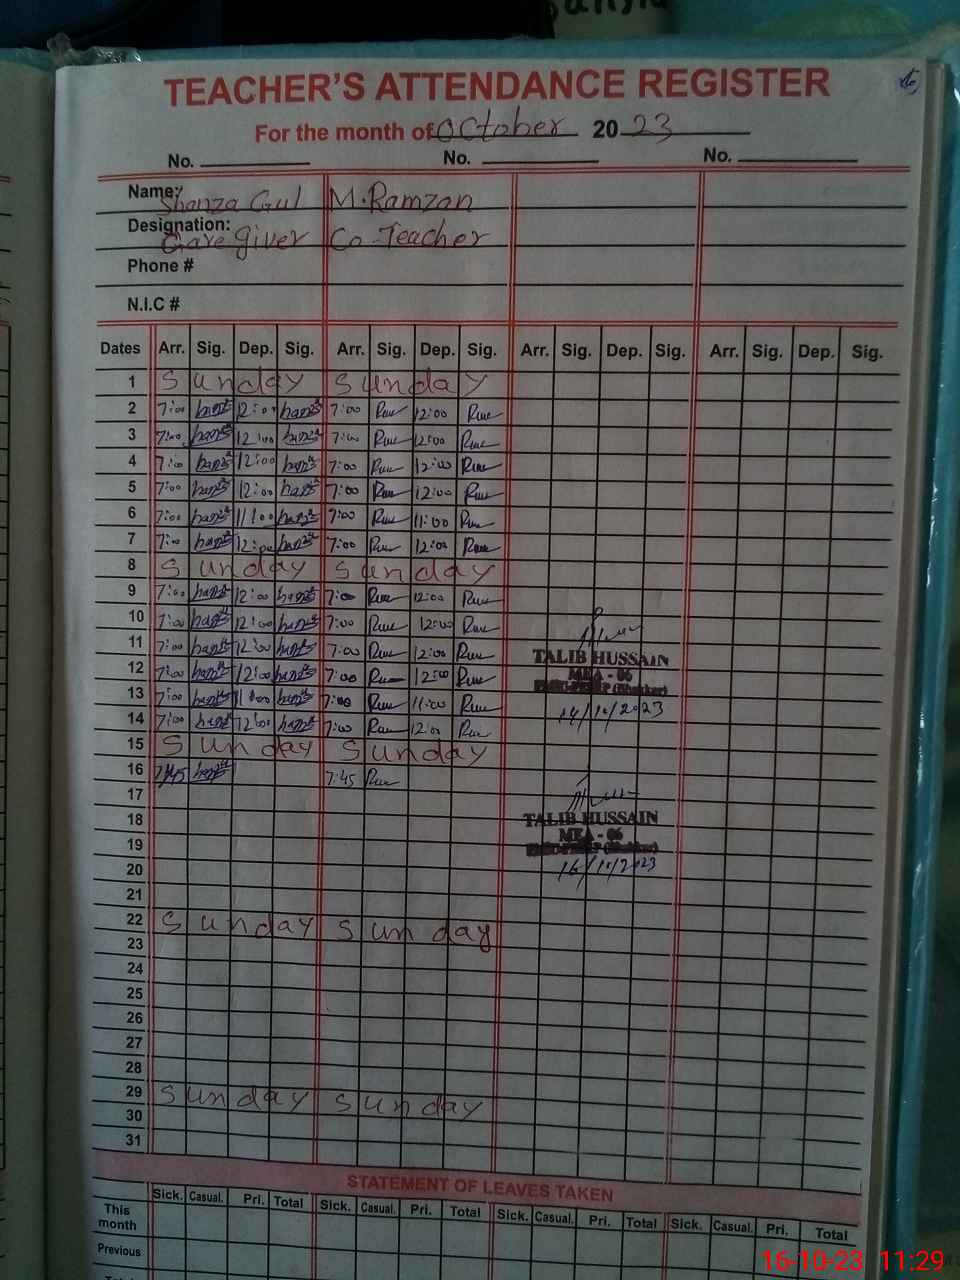 TEACHER'S ATTENDANCE REGISTER
For the month of October 20 23
No. No. No.
Name: Shanza Gul M. Ramzan
Designation: Care giver Co-Teacher
Phone #
N.I.C #
Dates Arr. Sig. Dep. Sig. Arr. Sig. Dep. Sig. Arr. Sig. Dep. Sig. Arr. Sig. Dep. Sig.
1 Sunday Sunday
2 7:00 12:00 7:00 12:00
3 7:00 12:00 7:00 12:00
4 7:00 12:00 7:00 12:00
5 7:00 12:00 7:00 12:00
6 7:00 11:00 7:00 11:00
7 7:00 12:00 7:00 12:00
8 Sunday Sunday
9 7:00 12:00 7:00 12:00
10 7:00 12:00 7:00 12:00
11 7:00 12:00 7:00 12:00
TALIB HUSSAIN
12 7:00 12:00 7:00 12:00
MEA - 06
13 7:00 11:00 7:00 11:00
(Bhakkar)
14 7:00 12:00 7:00 12:00
14/10/2023
15 Sunday Sunday
16 7:45 7:45
17
18
TALIB HUSSAIN
19
MEA - 06
(Bhakkar)
20
16/10/2023
21
22 Sunday Sunday
23
24
25
26
27
28
29 Sunday Sunday
30
31
STATEMENT OF LEAVES TAKEN
Sick. Casual. Pri. Total Sick. Casual. Pri. Total Sick. Casual. Pri. Total Sick. Casual. Pri. Total
This month
Previous
16-10-23 11:29